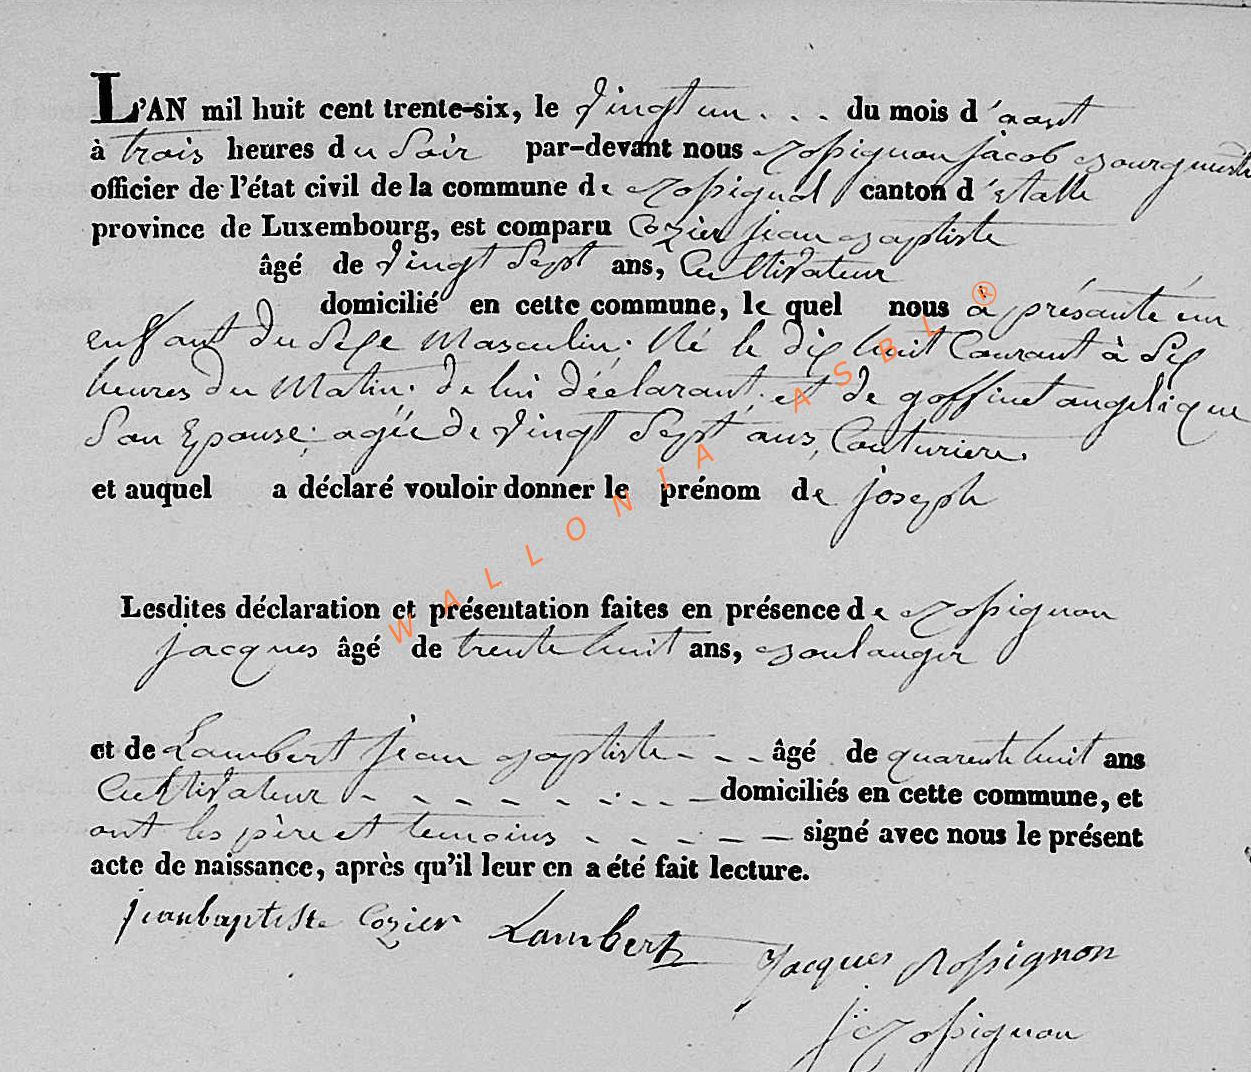 L'AN mil huit cent trente-six, le vingt un . . . du mois d'aout
à trois heures du Soir par-devant nous Rossignon jacob Bourgmestre
officier de l'état civil de la commune de Rossignol canton d'Etalle
province de Luxembourg, est comparu Cozier jean Baptiste
âgé de vingt Sept ans, Cultivateur
domicilié en cette commune, le quel nous à présanté un
enffant du Sexe Masculin; Né le dix huit Courant à Six
heures du Matin. de lui déclarant, et de goffinet angelique
Son Epouse; agée de vingt Sept ans, Couturiere.
et auquel a déclaré vouloir donner le prénom de joseph
Lesdites déclaration et présentation faites en présence de Rossignon
jacques âgé de trente huit ans, Boulanger
et de Lambert jean Baptiste - - - âgé de quarente huit ans
Cultivateur - - - - - - - - - domiciliés en cette commune, et
ont les père et temoins - - - - - signé avec nous le présent
acte de naissance, après qu'il leur en a été fait lecture.
jeanbaptiste Cozier Lambert Jacques Rossignon
j Rossignon
WALLONIA ASBL ®